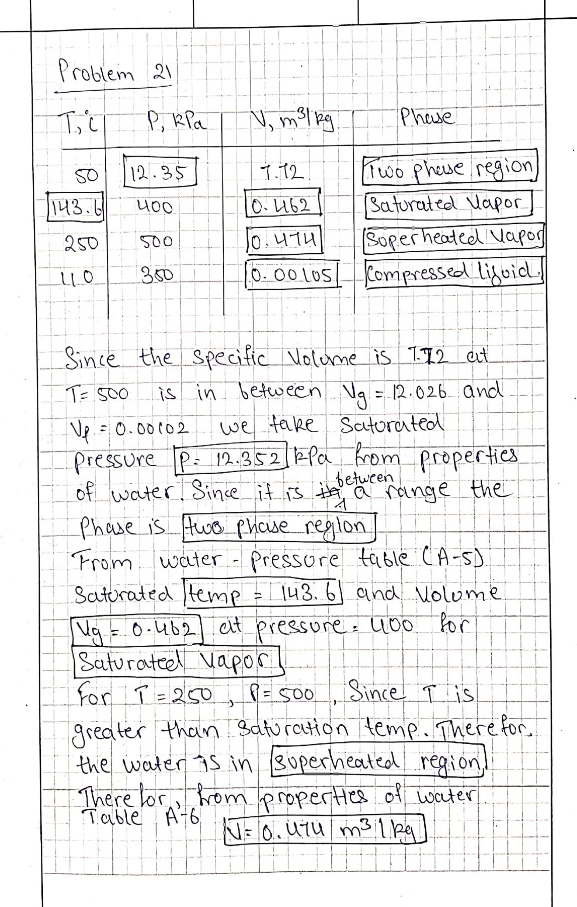 Problem 21
T, °C P, kPa V, m³/kg Phase
50 12.35 7.72 Two phase region
143.6 400 0.462 Saturated Vapor
250 500 0.474 Superheated Vapor
110 350 0.00105 Compressed liquid.
Since the specific Volume is 7.72 at
T= 500 is in between Vg = 12.026 and
Vf = 0.00102 we take Saturated
pressure P= 12.352 kPa from properties
of water. Since it is between a range the
Phase is two phase region
From water - pressure table (A-5)
Saturated temp = 143.6 and Volume
Vg = 0.462 at pressure = 400 for
Saturated Vapor
For T = 250 , P= 500 , Since T is
greater than saturation temp. Therefor,
the water is in superheated region.
Therefor, from properties of water
Table A-6
V= 0.474 m3/kg